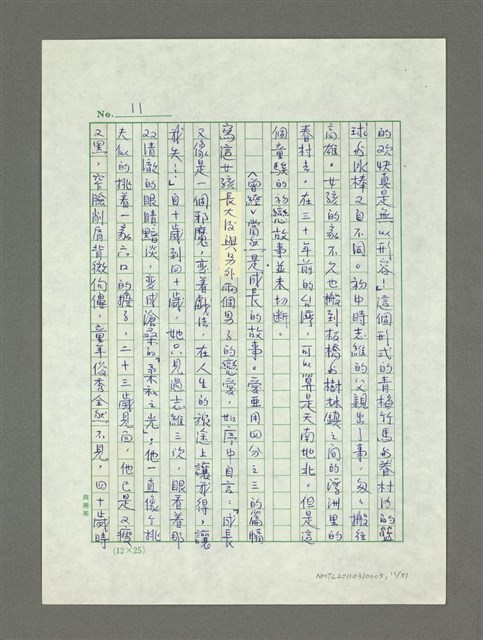 No. 11
的歡快真是無以形容!」這個形式的青梅竹馬與眷村的籃
球與冰棒又自不同。初中時志維的父親出了事,匆匆搬往
高雄。女孩的家不久也搬到板橋與樹林鎮之間的浮洲里的
眷村去。在三十年前的台灣,可以算是天南地北。但是這
個童騃的初戀故事並未切斷。
〈曾經〉當然是成長的故事。愛亞用四分之三的篇幅
寫這女孩長大後與另外兩個男子的戀愛,如序中自言:「成長
又像是一個邪魔,變着戲法,在人生的旅途上讓我得,讓
我失…」自十歲到四十歲,她只見過志維三次,眼看着那
双清澈的眼睛黯淡,變成滄桑的,他一直像个挑
夫似的挑着一家六口的擔子,二十三歲見面,他已是又瘦
又黑,窄臉削肩背微佝僂,童年俊秀全然不見,四十歲時
(12×25)
NMTL20110310005, 11/51